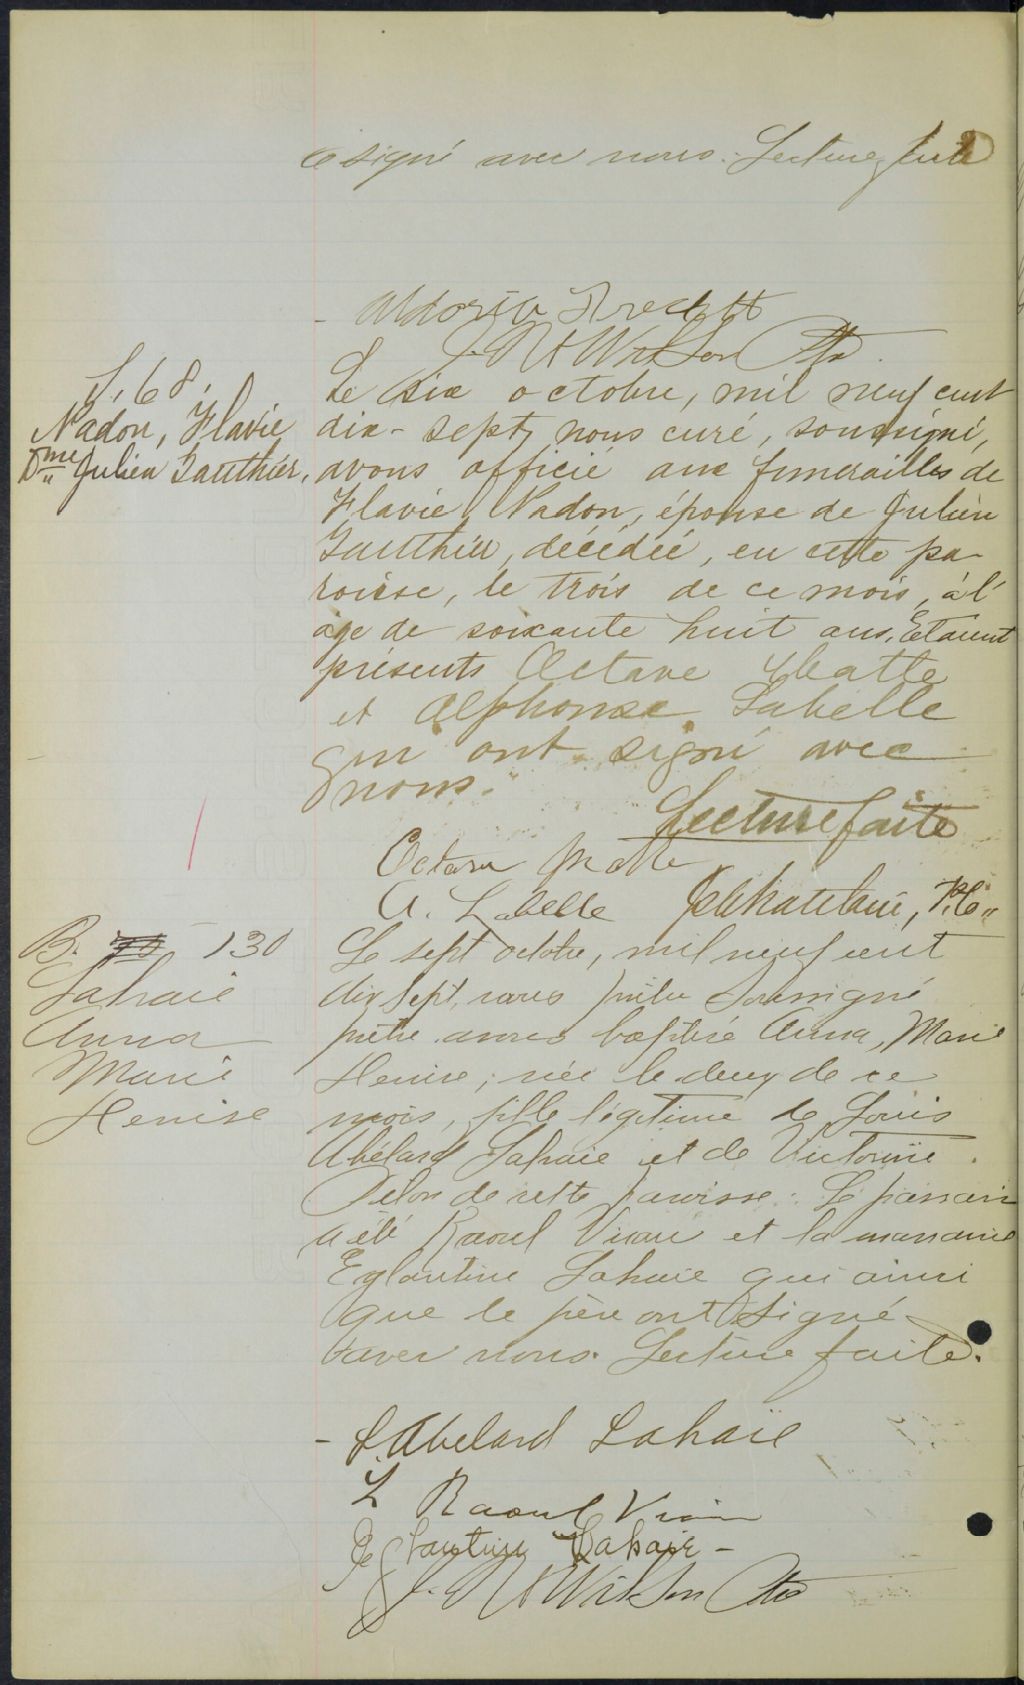 a signé avec nous. Lecture faite
J. N. A. Wilson Ptr
S. 68.
Nadon, Flavie
Dme Julien Gauthier.
Le six octobre, mil neuf cent
dix-sept, nous curé, soussigné,
avons officié aux funérailles de
Flavie Nadon, épouse de Julien
Gauthier, décédée, en cette pa-
roisse, le trois de ce mois, à l'
âge de soixante huit ans. Etaient
présents Octave
et Alphonse Labelle
qui ont signé avec
nous.
Lecture faite
Octave
A. Labelle
B. 130
Lahaie
Anna
Marie
Denise
Le sept octobre, mil neuf cent
dix sept, nous prêtre soussigné
prêtre avons baptisé Anna, Marie
Denise, née le deux de ce
mois, fille légitime de Louis
Abélard Lahaie et de Victorine
de cette paroisse. Le parrain
a été Raoul et la marraine
Eglantine Lahaie qui ainsi
que le père ont signé
avec nous. Lecture faite.
L. Abelard Lahaie
Raoul
Eglantine Lahaie
J. N. A. Wilson Ptr